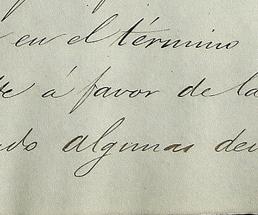 en el término
á favor de la
algunas